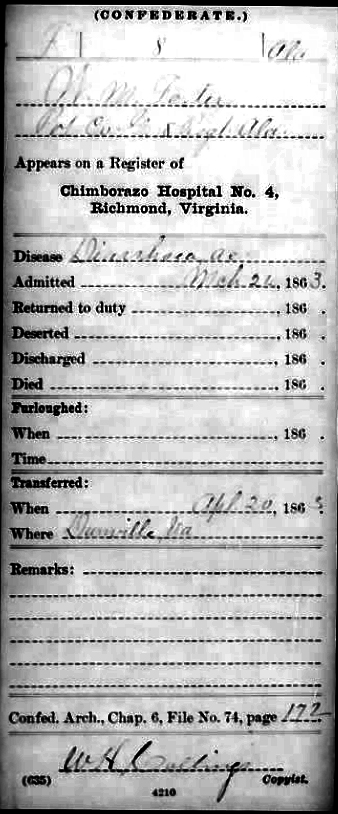 (CONFEDERATE.)
F 8 Ala
M. Foster
Pvt Co. 8 Regt Ala.
Appears on a Register of
Chimborazo Hospital No. 4,
Richmond, Virginia.
Disease Diarrhoea ac.
Admitted Mch 26, 1863.
Returned to duty , 186 .
Deserted , 186 .
Discharged , 186 .
Died , 186 .
Furloughed:
When , 186 .
Time
Transferred:
When Apl 20, 1863.
Where Danville, Va
Remarks:
Confed. Arch., Chap. 6, File No. 74, page 172
W H
(635) Copyist.
4210